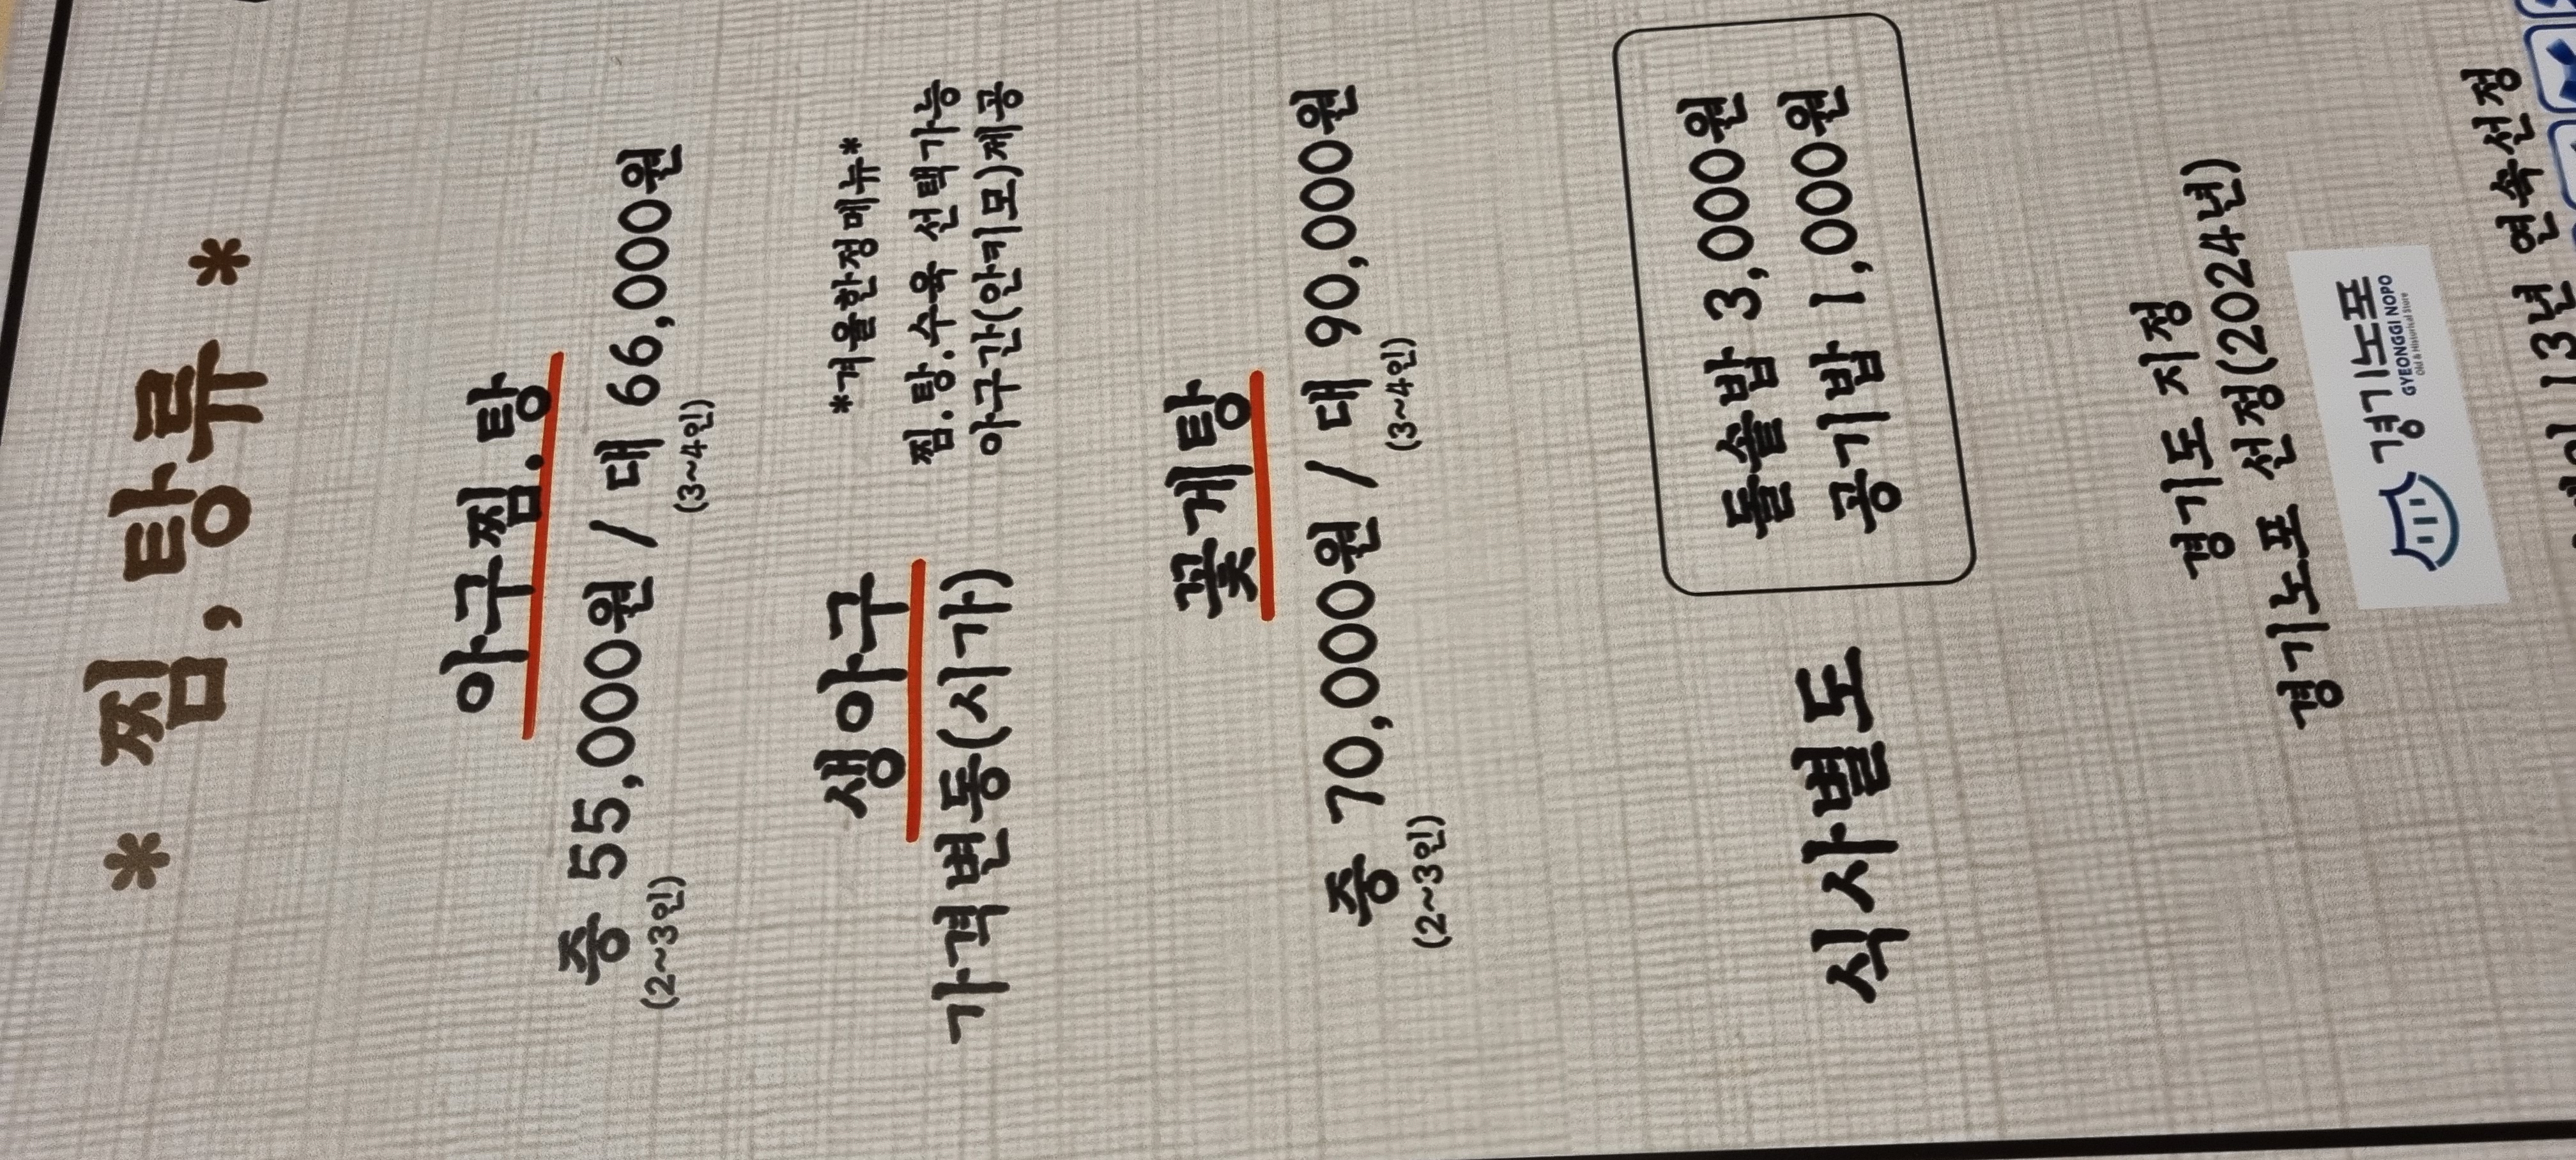 * 찜, 탕류 *
아구찜.탕
중 55,000원 / 대 66,000원
(2~3인) (3~4인)
생아구 *겨울한정메뉴*
가격변동(시가) 찜.탕.수육 선택가능
아구간(안키모)제공
꽃게탕
중 70,000원 / 대 90,000원
(2~3인) (3~4인)
식사별도
돌솥밥 3,000원
공기밥 1,000원
경기도 지정
경기노포 선정(2024년)
경기노포
GYEONGGI NOPO
Old & Historical Store
13년 연속선정